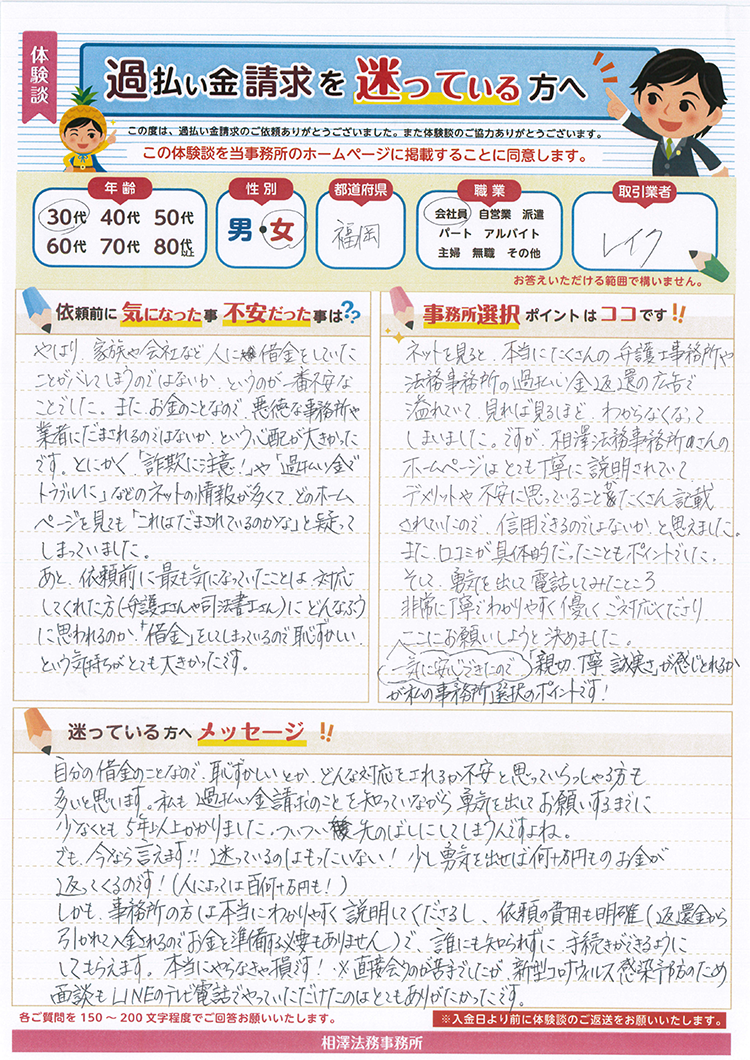 体験談
過払い金請求を 迷っている 方へ
この度は、過払い金請求のご依頼ありがとうございました。また体験談のご協力ありがとうございます。
この体験談を当事務所のホームページに掲載することに同意します。
年齢
30代 40代 50代
60代 70代 80代以上
性別
男・女
都道府県
福岡
職業
会社員 自営業 派遣
パート アルバイト
主婦 無職 その他
取引業者
レイク
お答えいただける範囲で構いません。
依頼前に 気になった事 不安だった事は??
やはり、家族や会社など人に借金をしていた
ことがバレてしまうのではないか、というのが一番不安な
ことでした。また、お金のことなので、悪徳な事務所や
業者にだまされるのではないか、という心配が大きかった
です。とにかく「詐欺に注意!」や「過払い金で
トラブルに」などのネットの情報が多くて、どのホーム
ページを見ても「これはだまされているのかな」と疑って
しまっていました。
あと、依頼前に最も気になっていたことは、対応
してくれた方(弁護士さんや司法書士さん)にどんなふう
に思われるのか、「借金」をしてしまっているので恥ずかしい
という気持ちがとても大きかったです。
事務所選択 ポイントは ココです!!
ネットを見ると、本当にたくさんの弁護士事務所や
法務事務所の過払い金返還の広告で
溢れていて、見れば見るほど、わからなくなって
しまいました。ですが、相澤法務事務所さんの
ホームページはとても丁寧に説明されていて
デメリットや不安に思っていることもたくさん記載
されていたので、信用できるのではないか、と思えました。
また、口コミが具体的だったこともポイントでした。
そして、勇気を出して電話してみたところ
非常に丁寧でわかりやすく優しくご対応くださり
ここにお願いしようと決めました。
一気に安心できたので「親切、丁寧、誠実さ」が感じとれるか
が私の事務所選択のポイントです!
迷っている方へ メッセージ !!
自分の借金のことなので、恥ずかしいとか、どんな対応をされるか不安と思っていらっしゃる方も
多いと思います。私も過払い金請求のことを知っていながら勇気を出してお願いするまでに
少なくとも5年以上かかりました。ついつい後先のばしにしてしまうんですよね。
でも、今なら言えます!!迷っているのはもったいない!少し勇気を出せば何十万円ものお金が
返ってくるのです!(人によっては百何十万円も!)
しかも、事務所の方は本当にわかりやすく説明してくださるし、依頼の費用も明確(返還金から
引かれて入金されるのでお金を準備する必要もありません)で、誰にも知られずに手続きができるように
してもらえます。本当にやらなきゃ損です!※直接会うのが苦手でしたが、新型コロナウィルス感染予防のため
面談もLINEのテレビ電話でやっていただけたのはとてもありがたかったです。
各ご質問を150〜200文字程度でご回答お願いいたします。
※入金日より前に体験談のご返送をお願いいたします。
相澤法務事務所